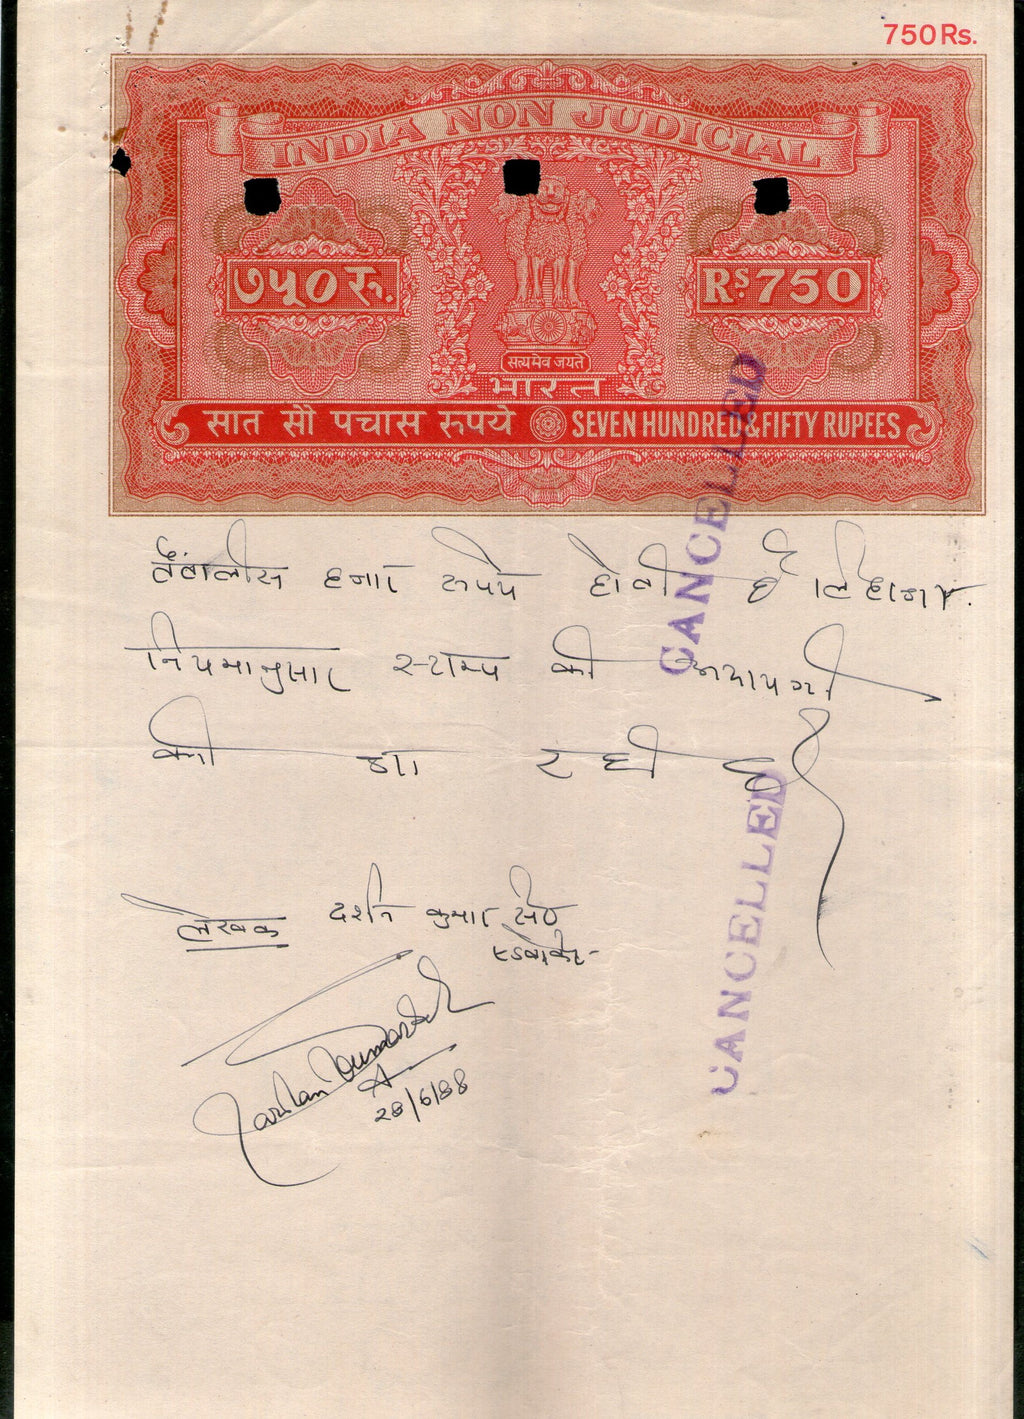 750 Rs.
INDIA NON JUDICIAL
७५० रु. RS. 750
सत्यमेव जयते
भारत
सात सौ पचास रुपये SEVEN HUNDRED & FIFTY RUPEES
तैंतालीस हजार रूपये होती है लिहाजा
नियमानुसार स्टाम्प की अदायगी
की जा रही है
CANCELLED
CANCELLED
लेखक दर्शन कुमार सेठ
एडवोकेट
Darshan Kumar Seth
A
28/6/88